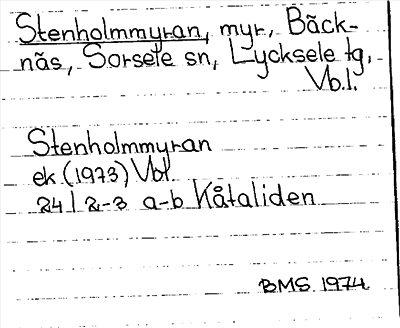 Stenholmmyran, myr, Bäck-
näs, Sorsele sn, Lycksele tg,
Vb.l.
Stenholmmyran
ek (1973) Vbl.
24 I 2-3 a-b Kåtaliden
BMS 1974